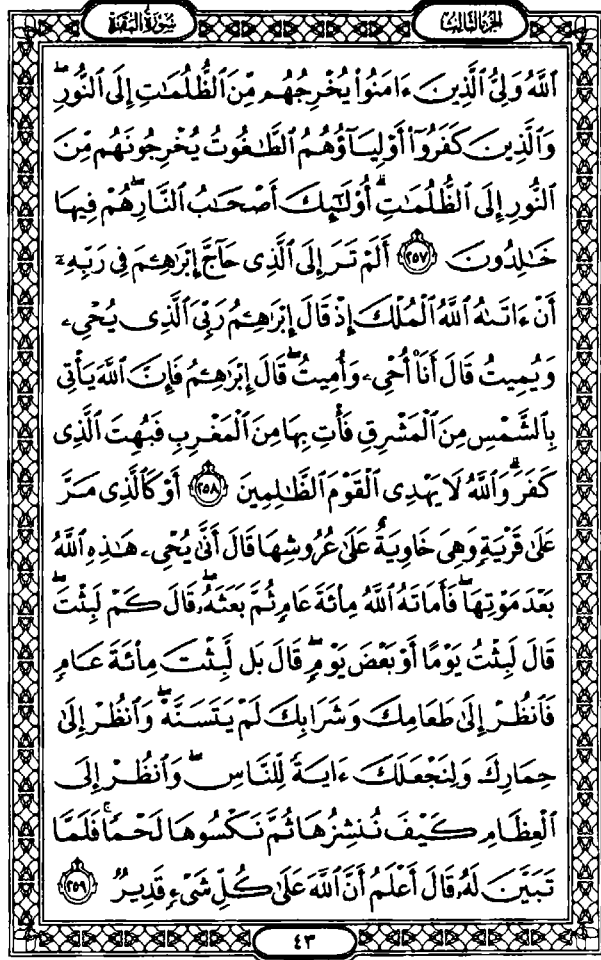 سورة البقرة
الجزء الثالث
ٱللَّهُ وَلِيُّ ٱلَّذِينَ ءَامَنُوا۟ يُخْرِجُهُم مِّنَ ٱلظُّلُمَٰتِ إِلَى ٱلنُّورِۖ
وَٱلَّذِينَ كَفَرُوٓا۟ أَوْلِيَآؤُهُمُ ٱلطَّٰغُوتُ يُخْرِجُونَهُم مِّنَ
ٱلنُّورِ إِلَى ٱلظُّلُمَٰتِۗ أُو۟لَٰٓئِكَ أَصْحَٰبُ ٱلنَّارِۖ هُمْ فِيهَا
خَٰلِدُونَ ٢٥٧ أَلَمْ تَرَ إِلَى ٱلَّذِى حَآجَّ إِبْرَٰهِۦمَ فِى رَبِّهِۦٓ
أَنْ ءَاتَىٰهُ ٱللَّهُ ٱلْمُلْكَ إِذْ قَالَ إِبْرَٰهِۦمُ رَبِّىَ ٱلَّذِى يُحْىِۦ
وَيُمِيتُ قَالَ أَنَا۠ أُحْىِۦ وَأُمِيتُۖ قَالَ إِبْرَٰهِۦمُ فَإِنَّ ٱللَّهَ يَأْتِى
بِٱلشَّمْسِ مِنَ ٱلْمَشْرِقِ فَأْتِ بِهَا مِنَ ٱلْمَغْرِبِ فَبُهِتَ ٱلَّذِى
كَفَرَۗ وَٱللَّهُ لَا يَهْدِى ٱلْقَوْمَ ٱلظَّٰلِمِينَ ٢٥٨ أَوْ كَٱلَّذِى مَرَّ
عَلَىٰ قَرْيَةٍ وَهِىَ خَاوِيَةٌ عَلَىٰ عُرُوشِهَا قَالَ أَنَّىٰ يُحْىِۦ هَٰذِهِ ٱللَّهُ
بَعْدَ مَوْتِهَاۖ فَأَمَاتَهُ ٱللَّهُ مِا۟ئَةَ عَامٍ ثُمَّ بَعَثَهُۥۖ قَالَ كَمْ لَبِثْتَۖ
قَالَ لَبِثْتُ يَوْمًا أَوْ بَعْضَ يَوْمٍۖ قَالَ بَل لَّبِثْتَ مِا۟ئَةَ عَامٍ
فَٱنظُرْ إِلَىٰ طَعَامِكَ وَشَرَابِكَ لَمْ يَتَسَنَّهْۖ وَٱنظُرْ إِلَىٰ
حِمَارِكَ وَلِنَجْعَلَكَ ءَايَةً لِّلنَّاسِۖ وَٱنظُرْ إِلَى
ٱلْعِظَامِ كَيْفَ نُنشِزُهَا ثُمَّ نَكْسُوهَا لَحْمًاۚ فَلَمَّا
تَبَيَّنَ لَهُۥ قَالَ أَعْلَمُ أَنَّ ٱللَّهَ عَلَىٰ كُلِّ شَىْءٍ قَدِيرٌ ٢٥٩
٤٣